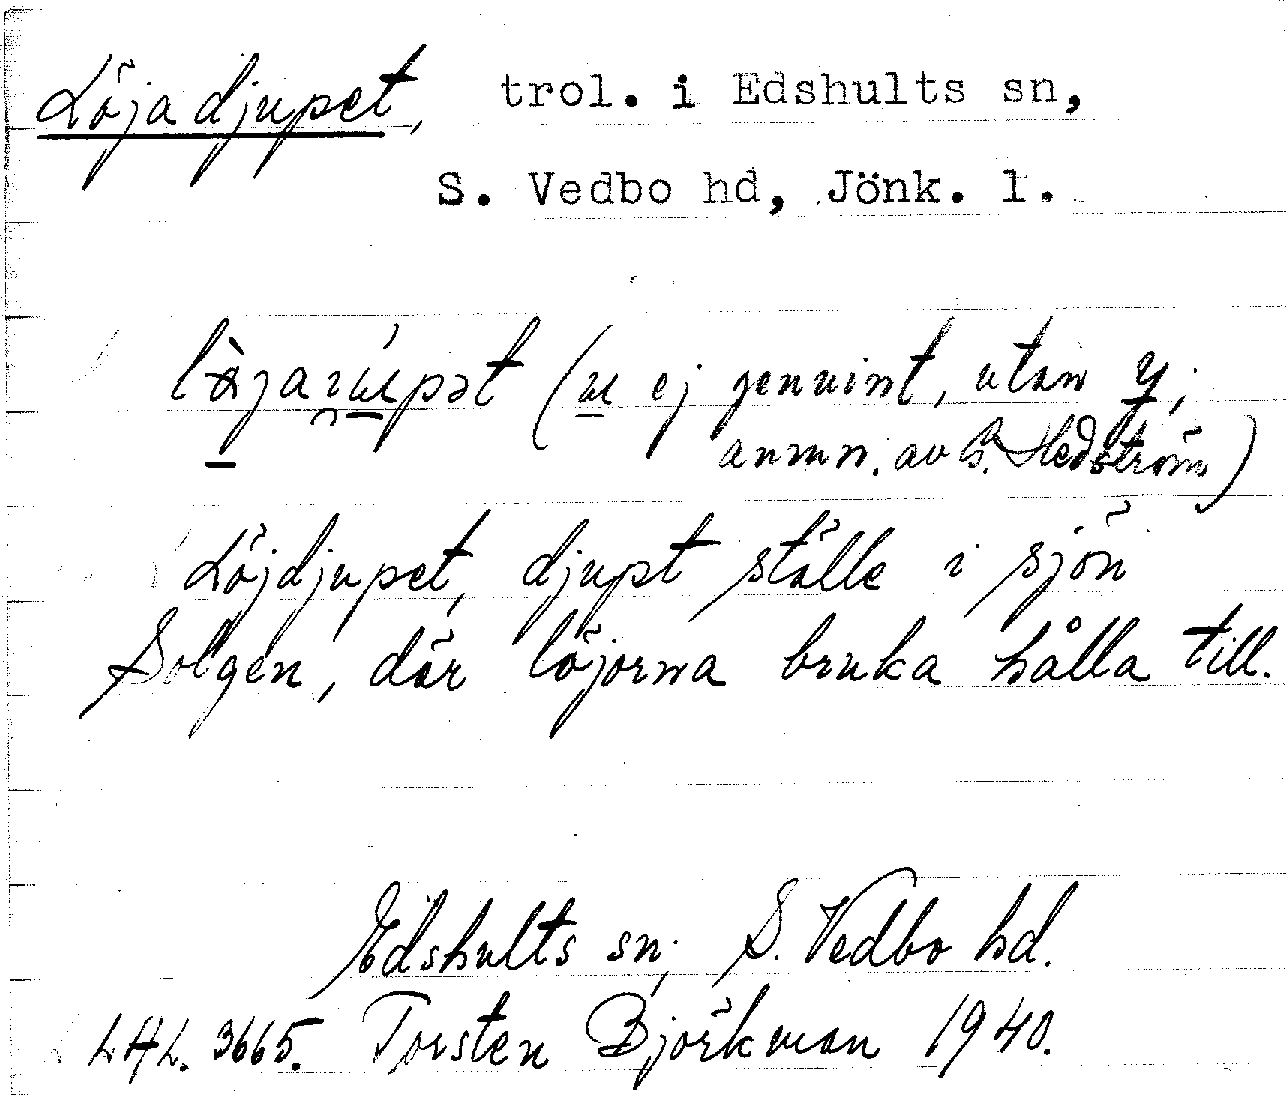 Löjadjupet, trol. i Edshults sn,
S. Vedbo hd, Jönk. l.
(u ej genuint, utan y;
anmn. av G. Hedström)
Löjdjupet, djupt ställe i sjön
Solgen, där löjorna bruka hålla till.
Edshults sn; S. Vedbo hd.
LAL. 3665. Torsten Björkman 1940.